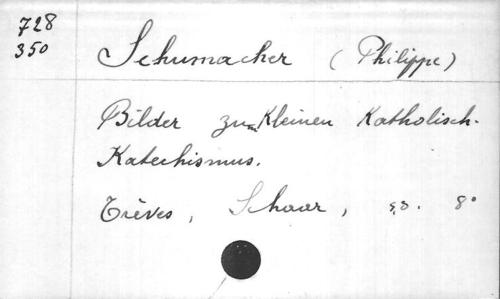 728
350
Schumacher (Philippe)
Bilder zum Kleinen Katholisch-
Katechismus.
Trèves, Schaar, s.d. 8°